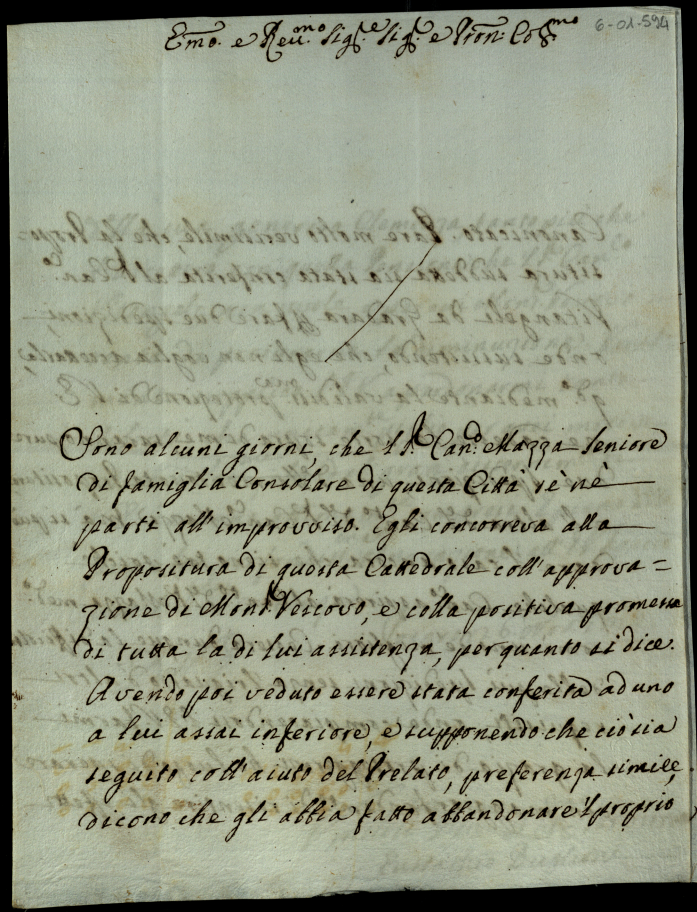 6-01-594
Emo. e Reu.mo Sig.re Sig.r e Pron. Col.mo
Sono alcuni giorni, che il Can.o Mazza Seniore
di famiglia Consolare di questa Città se n'è
partì all'improvviso. Egli concorreva alla
Propositura di questa Cattedrale coll'approva=
zione di Mons.r Vescovo, e colla positiva promessa
di tutta la di lui assistenza, per quanto si dice.
Avendo poi veduto essere stata conferita ad uno
a lui assai inferiore, e supponendo che ciò sia
seguito coll'aiuto del Prelato, preferenza simile,
dicono che gli abbia fatto abbandonare il proprio